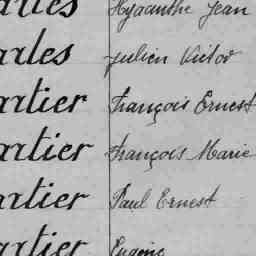 arles Hyacinthe Jean
arles Julien Victor
artier François Ernest
artier François Marie
artier Paul Ernest
artier Eugène